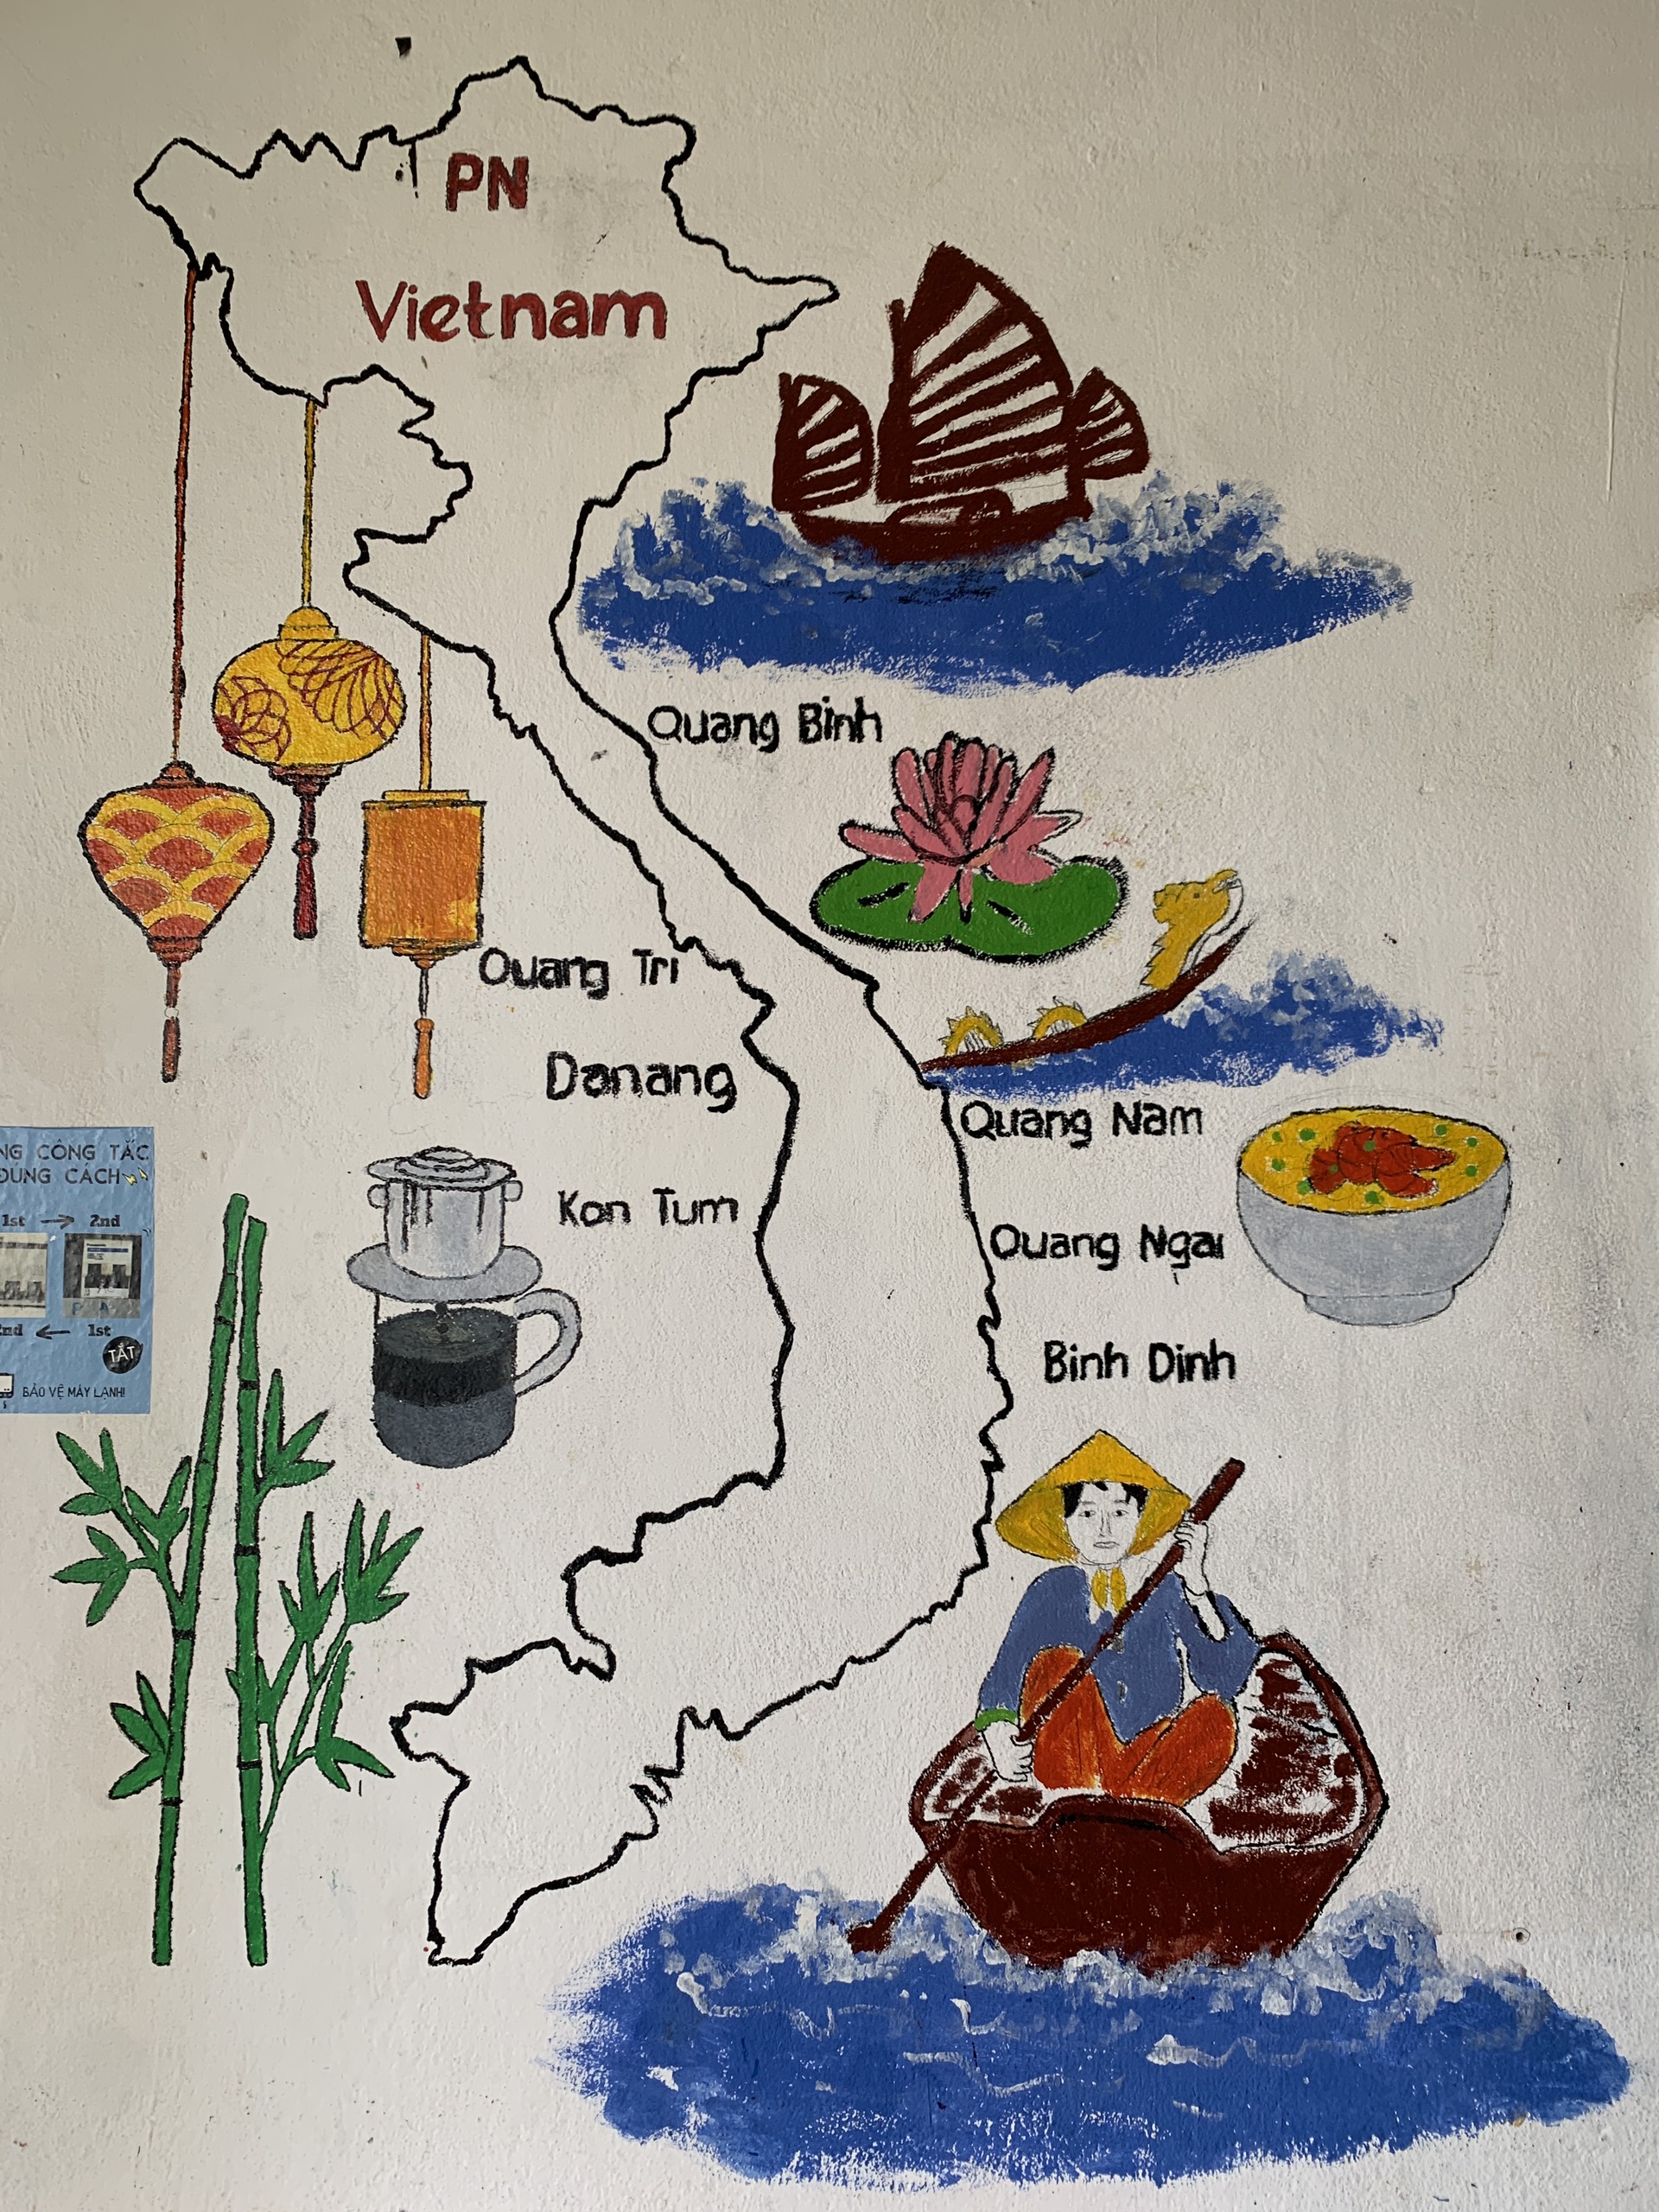 PN
Vietnam
Quang Binh
Quang Tri
Danang
Quang Nam
Kon Tum
Quang Ngai
Binh Dinh
NG CÔNG TẮC
ĐÚNG CÁCH
1st → 2nd
2nd ← 1st
TẮT
BẢO VỆ MÁY LẠNH!